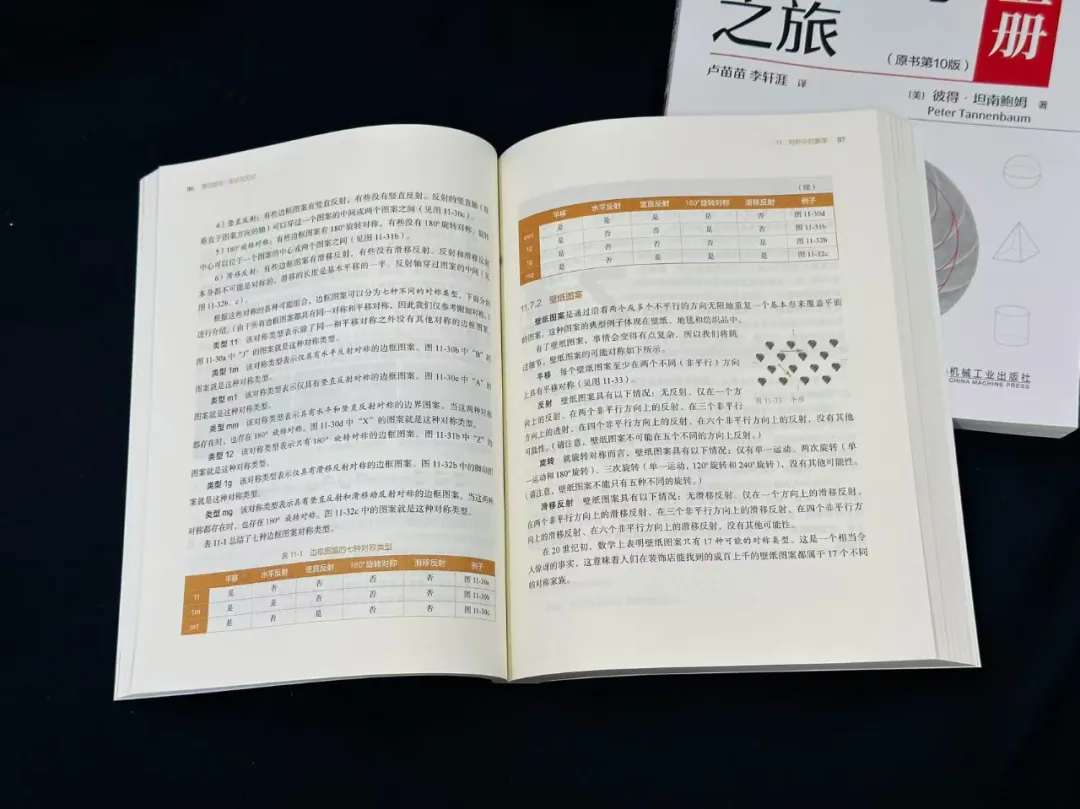 之旅
册
(原书第10版)
卢苗苗 李轩涯 译
[美] 彼得·坦南鲍姆 著
Peter Tannenbaum
机械工业出版社
CHINA MACHINE PRESS
96
4)竖直反射:有些边框图案有竖直反射,有些没有竖直反射。反射的竖直轴(即
垂直于图案方向的轴)可以穿过一个图案的中间或两个图案之间(见图 11-30c)。
5)180°旋转对称:有些边框图案有180°旋转对称,有些没有180°旋转对称。旋转
中心可以位于一个图案的中心或两个图案之间(见图 11-31b)。
6)滑移反射:有些边框图案有滑移反射,有些没有滑移反射。反射和滑移反射
本身都不可能是对称的。滑移的长度是基本平移的一半,反射轴穿过图案的中间(见
图 11-32b、c)。
根据这些对称的各种可能组合,边框图案可以分为七种不同的对称类型,下面分别
进行介绍。(由于所有边框图案都具有同一对称和平移对称,因此我们仅参考附加对称。)
类型 11 该对称类型表示除了同一和平移对称之外没有其他对称的边框图案。
图 11-30a 中“J”的图案就是这种对称类型。
类型 1m 该对称类型表示仅具有水平反射对称的边框图案。图 11-30b 中“B”的
图案就是这种对称类型。
类型 m1 该对称类型表示仅具有竖直反射对称的边框图案。图 11-30c 中“A”的
图案就是这种对称类型。
类型 mm 该对称类型表示具有水平和竖直反射对称的边界图案。当这两种对称
都存在时,也存在180°旋转对称。图 11-30d 中“X”的图案就是这种对称类型。
类型 12 该对称类型表示只有180°旋转对称的边框图案。图 11-31b 中“Z”的
图案就是这种对称类型。
类型 1g 该对称类型表示仅具有滑移反射对称的边框图案。图 11-32b 中的脚印图
案就是这种对称类型。
类型 mg 该对称类型表示具有竖直反射和滑移动反射对称的边框图案。当这两种
对称都存在时,也存在180°旋转对称。图 11-32c 中的图案就是这种对称类型。
表 11-1 总结了七种边框图案对称类型。
表 11-1 边框图案的七种对称类型
平移 水平反射 竖直反射 180°旋转对称 滑移反射 例子
11 是 否 否 否 否 图 11-30a
1m 是 是 否 否 否 图 11-30b
m1 是 否 是 否 否 图 11-30c
11 对称中的数学 97
(续)
平移 水平反射 竖直反射 180°旋转对称 滑移反射 例子
mm 是 是 是 是 否 图 11-30d
12 是 否 否 是 否 图 11-31b
1g 是 否 否 否 是 图 11-32b
mg 是 否 是 是 是 图 11-32c
11.7.2 壁纸图案
壁纸图案是通过沿着两个或多个不平行的方向无限地重复一个基本形来覆盖平面
的图案。这种图案的典型例子体现在壁纸、地毯和纺织品中。
有了壁纸图案,事情会变得有点复杂。所以我们将跳
过细节。壁纸图案的可能对称如下所示。
平移 每个壁纸图案至少在两个不同(非平行)方向
上具有平移对称(见图 11-33)。
反射 壁纸图案具有以下情况:无反射、仅在一个方
向上的反射、在两个非平行方向上的反射、在三个非平行
方向上的透射、在四个非平行方向上的反射、在六个非平行方向上的反射,没有其他
可能性。(请注意,壁纸图案不可能在五个不同的方向上反射。)
图 11-33 平移
旋转 就旋转对称而言,壁纸图案具有以下情况:仅有单一运动、两次旋转(单
一运动和180°旋转)、三次旋转(单一运动、120°旋转和240°旋转),没有其他可能性。
(请注意,壁纸图案不能只有五种不同的旋转。)
滑移反射 壁纸图案具有以下情况:无滑移反射、仅在一个方向上的滑移反射、
在两个非平行方向上的滑移反射、在三个非平行方向上的滑移反射、在四个非平行方
向上的滑移反射、在六个非平行方向上的滑移反射,没有其他可能性。
在 20 世纪初,数学上表明壁纸图案只有 17 种可能的对称类型。这是一个相当令
人惊讶的事实,这意味着人们在装饰店能找到的成百上千的壁纸图案都属于 17 个不同
的对称家族。